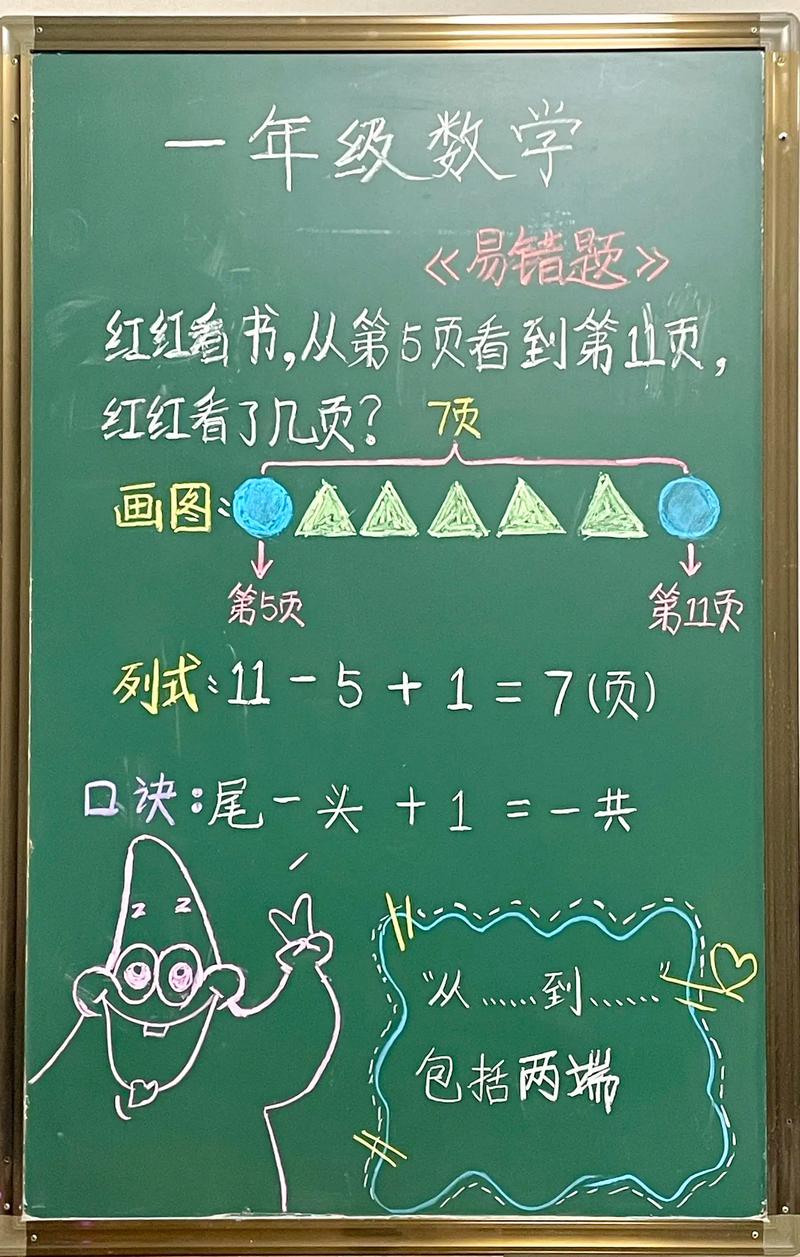 一年级数学
《易错题》
红红看书,从第5页看到第11页,
红红看了几页?
7页
画图:
第5页 第11页
列式:11-5+1=7(页)
口诀:尾-头+1=一共
“从……到……”
包括两端